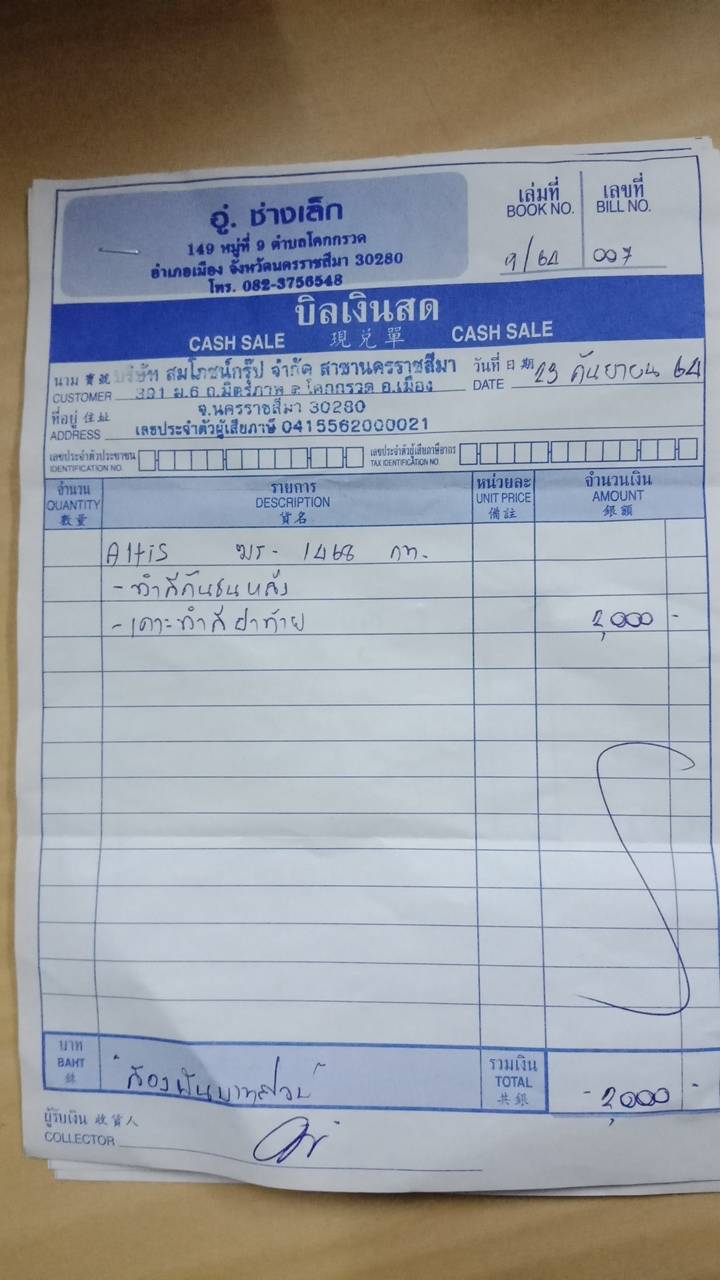 อู่. ช่างเล็ก
149 หมู่ที่ 9 ตำบลโคกกรวด
อำเภอเมือง จังหวัดนครราชสีมา 30280
โทร. 082-3756548
เล่มที่ เลขที่
BOOK NO. BILL NO.
9/64 007
บิลเงินสด
CASH SALE 現兌單 CASH SALE
นาม 寶號 บริษัท สมโภชน์กรุ๊ป จำกัด สาขานครราชสีมา วันที่ 日期 23 กันยายน 64
CUSTOMER 301 ม.6 ถ.มิตรภาพ ต.โคกกรวด อ.เมือง DATE
ที่อยู่ 住址 จ.นครราชสีมา 30280
ADDRESS เลขประจำตัวผู้เสียภาษี 0415562000021
เลขประจำตัวประชาชน เลขประจำตัวผู้เสียภาษีอากร
IDENTIFICATION NO. TAX IDENTIFICATION NO.
จำนวน รายการ หน่วยละ จำนวนเงิน
QUANTITY DESCRIPTION UNIT PRICE AMOUNT
數量 貨名 備註 銀額
Altis ฆร - 1468 กท.
- ทำสีกันชนหลัง
- เคาะทำสีฝาท้าย 2,000 -
บาท รวมเงิน
BAHT "สองพันบาทถ้วน" TOTAL - 2,000 -
銖 共銀
ผู้รับเงิน 收貨人
COLLECTOR